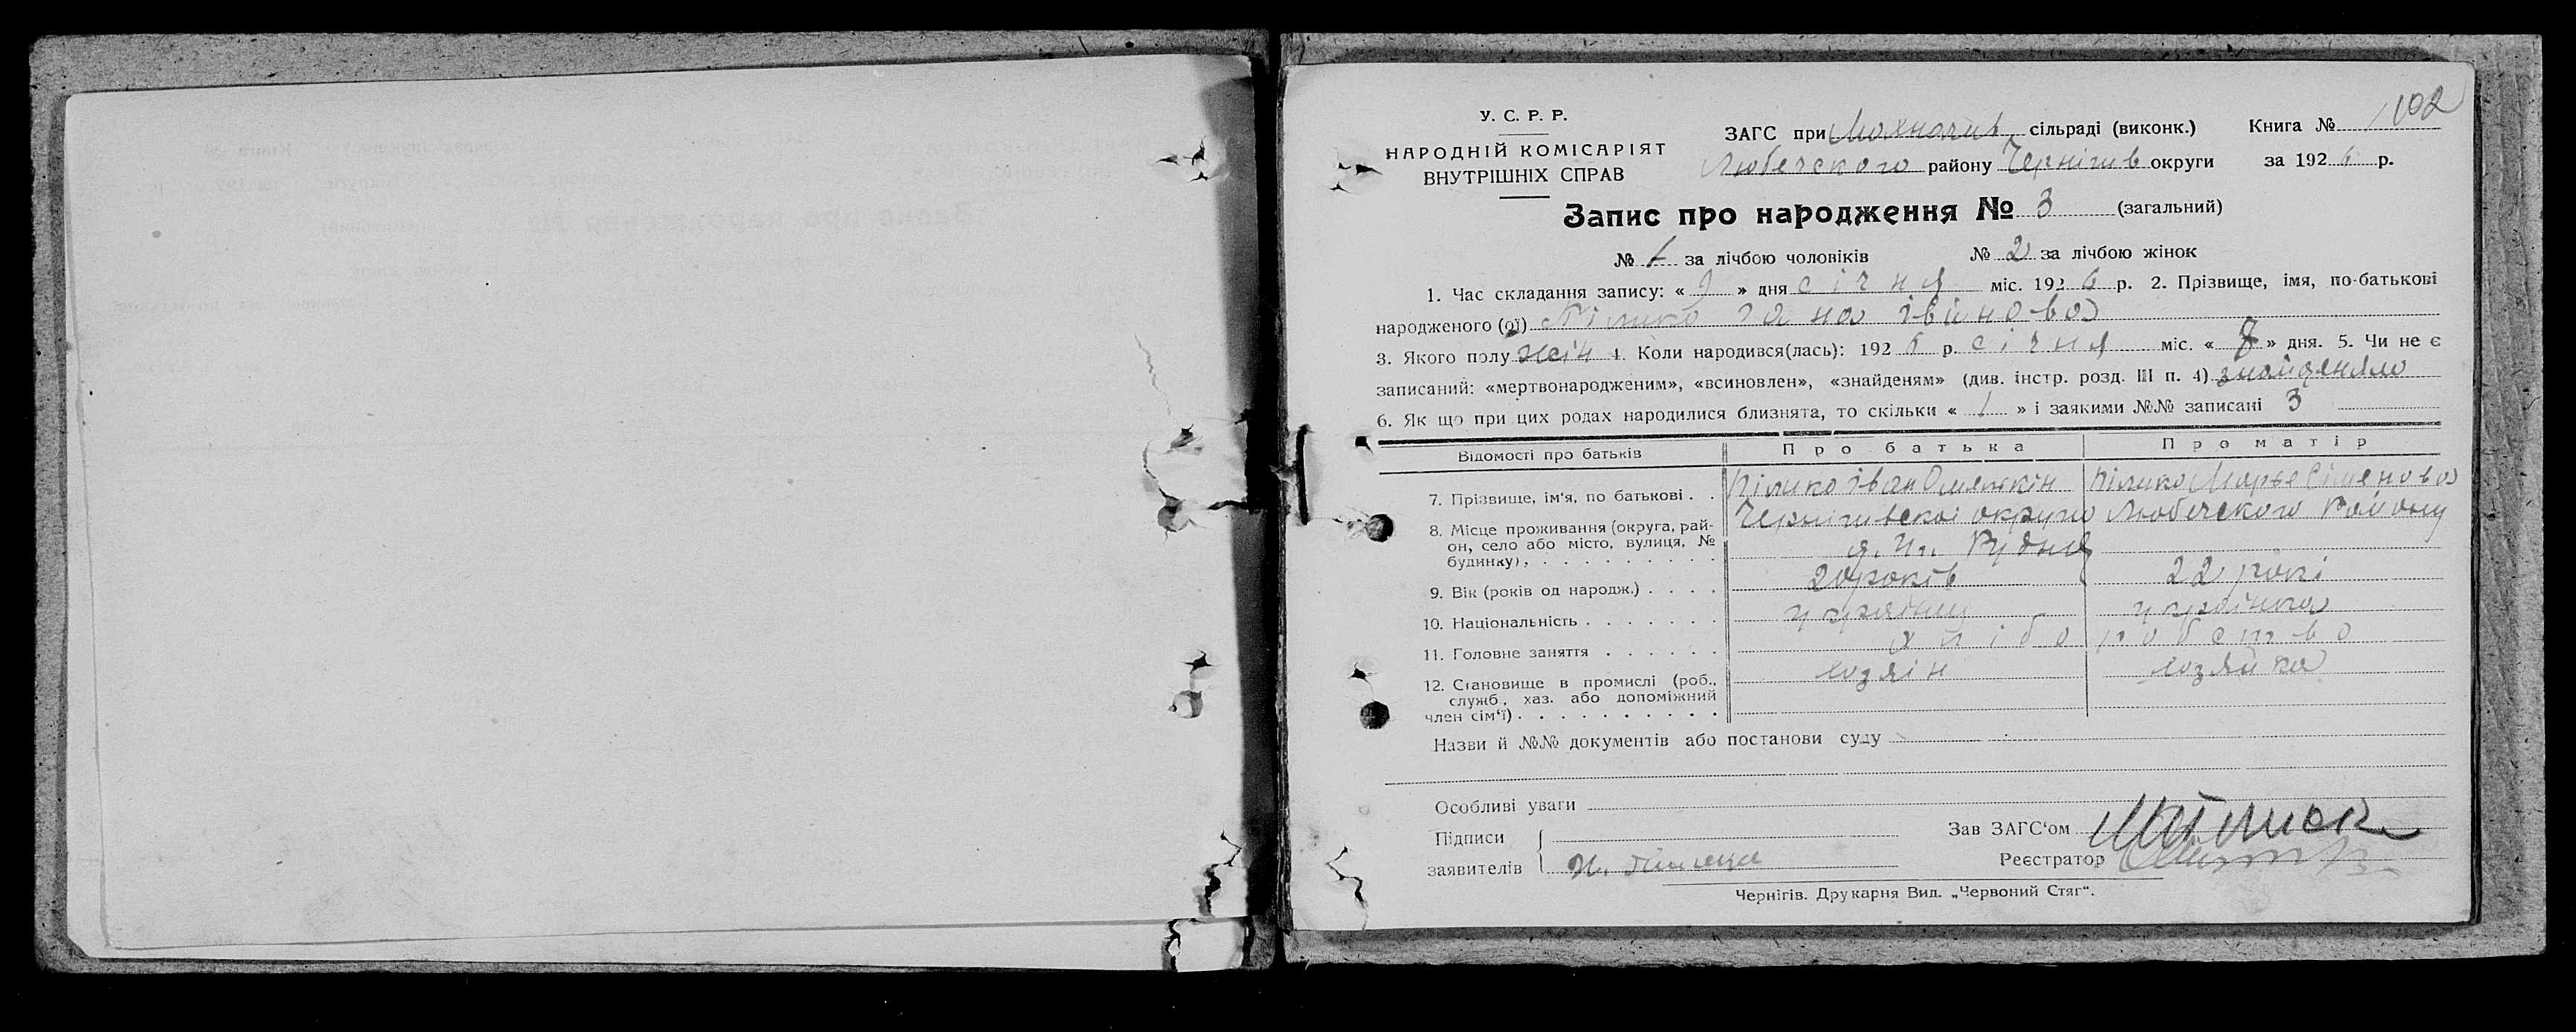 102
У. С. Р. Р.
НАРОДНІЙ КОМІСАРІЯТ
ВНУТРІШНІХ СПРАВ
ЗАГС при Мохначів. сільраді (виконк.) Книга № 1
Любечского району Чернігив округи за 1926 р.
Запис про народження № 3 (загальний)
№ 1 за лічбою чоловіків № 2 за лічбою жінок
1. Час складання запису: « 9 » дня січня міс. 1926 р. 2. Прізвище, імя, по-батькові
народженого (ої) Ганна Іванова
3. Якого полу жін 4. Коли народився(лась): 1926 р. січня міс. « 8 » дня. 5. Чи не є
записаний: «мертвонародженим», «всиновлен», «знайденям» (див. інстр. розд. III п. 4)
6. Як що при цих родах народилися близнята, то скільки « 1 » і заякими №№ записані 3
Відомості про батьків Про батька Про матір
7. Прізвище, ім'я, по батькові . . Іван Марья Сіменова
8. Місце проживання (округа, рай- Чернигивскоі округи Любечского Району
он, село або місто, вулиця, № Рудня
будинку), . . . . . . . . . .
9. Вік (років од народж.) . . . . 20 років 22 рокі
10. Національність . . . . . . . україниц українка
11. Головне заняття . . . . . . хлібо робство
12. Становище в промислі (роб., хозяін хозяйка
служб, хаз. або допоміжний
член сім'ї) . . . . . . . . . .
Назви й №№ документів або постанови суду
Особливі уваги
Підписи
заявителів
Зав ЗАГС'ом
Реєстратор
Чернігів. Друкарня Вид. „Червоний Стяг“.